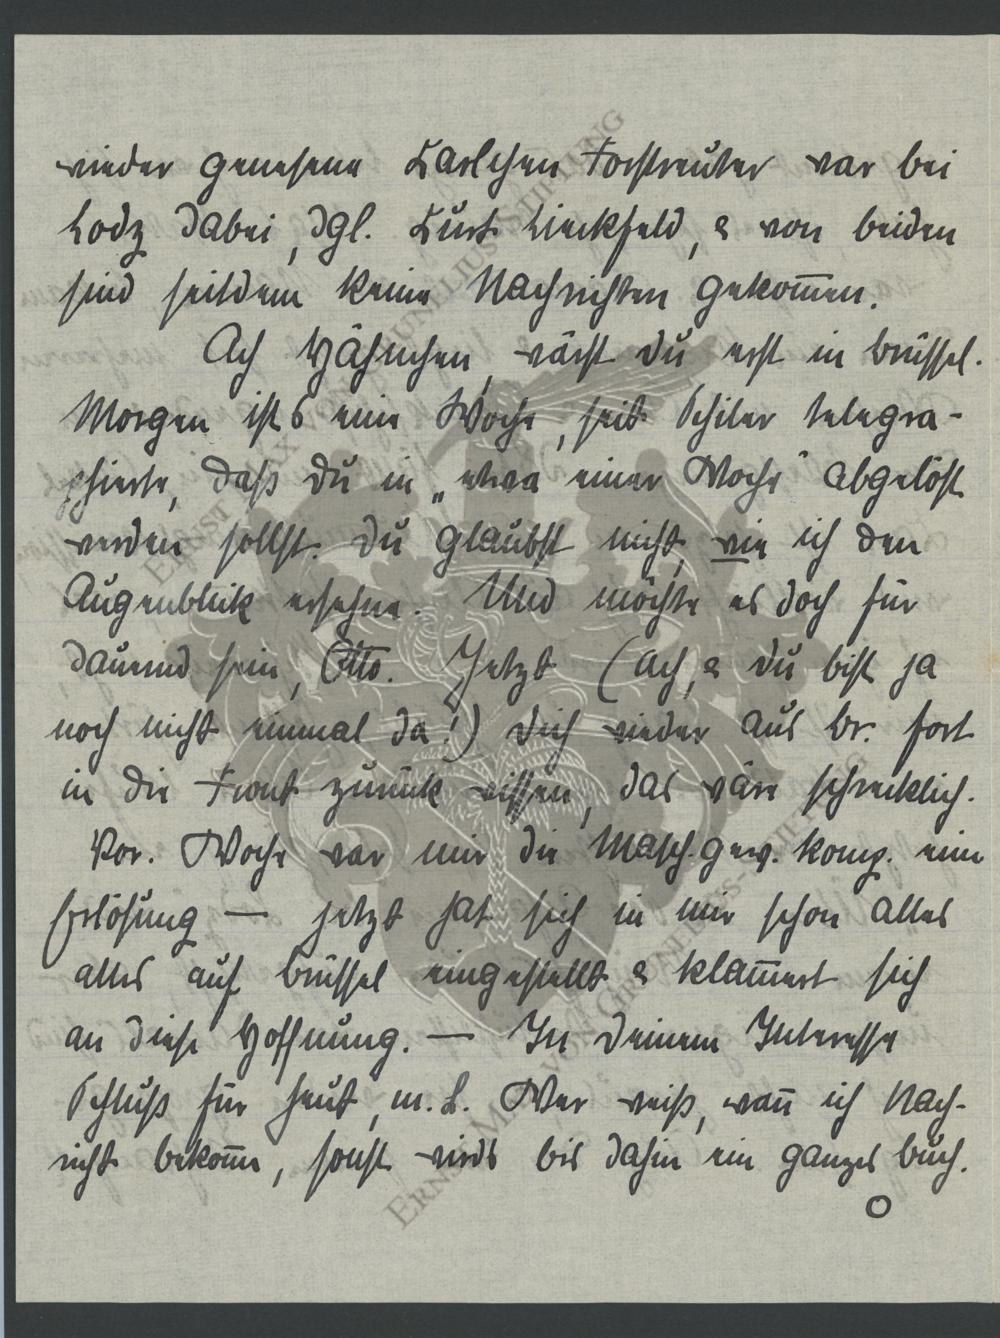 wieder genesene Karlchen Forstreuter war bei
Lodz dabei, dgl. Kurt Lieckfeld, & von beiden
sind seitdem keine Nachrichten gekom̅en.
Ach Hähnchen, wärst du erst in Brüssel.
Morgen ist's eine Woche, seit Schiler telegra-
phierte, daß du in „etwa einer Woche" abgelöst
werden sollst. Du glaubst nicht, wie ich den
Augenblick ersehne. Und möchte es doch für
dauernd sein, Otto. Jetzt (ach, & du bist ja
noch nicht einmal da!) dich wieder aus Br. fort
in die Front zurück wissen, das wäre schrecklich.
Vor. Woche war mir die Masch. gew. komp. eine
Erlösung — jetzt hat sich in mir schon alles
alles auf Brüssel eingestellt & klam̅ert sich
an diese Hoffnung. — In deinem Interesse
Schluß für heut, m. L. Wer weiß, wan̅ ich Nach-
richt bekom̅e, sonst wirds bis dahin ein ganzes Buch.
ERNST MAX VON GRUNELIUS-STIFTUNG
ERNST MAX VON GRUNELIUS-STIFTUNG